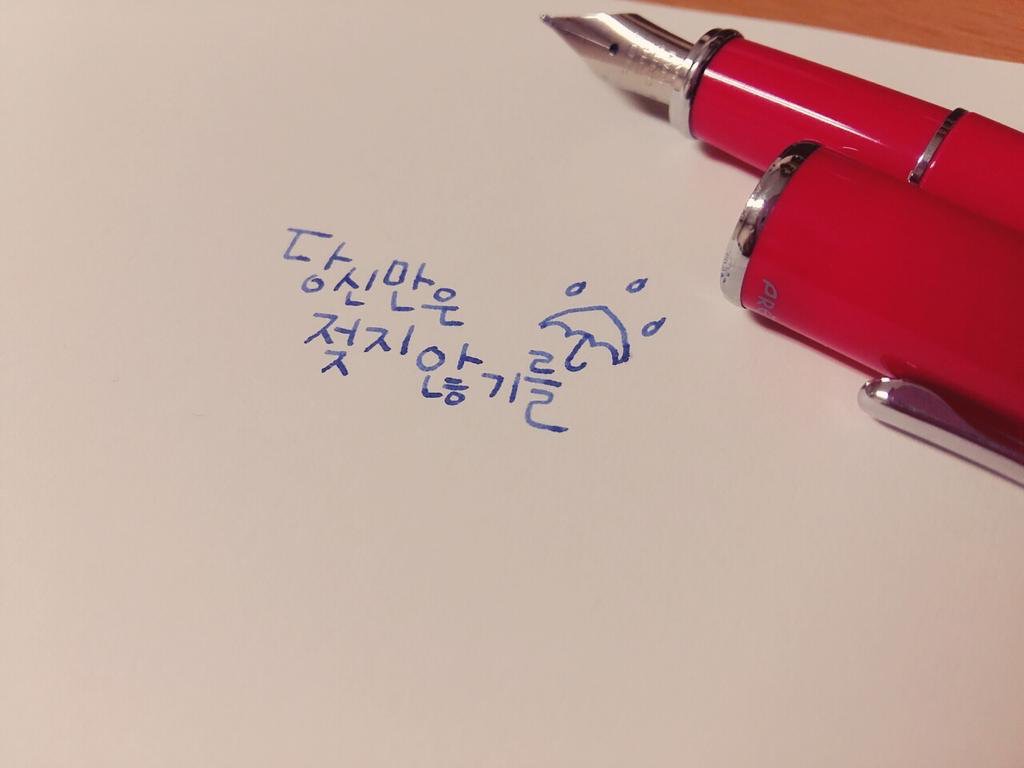 당신만은
젖지 않기를